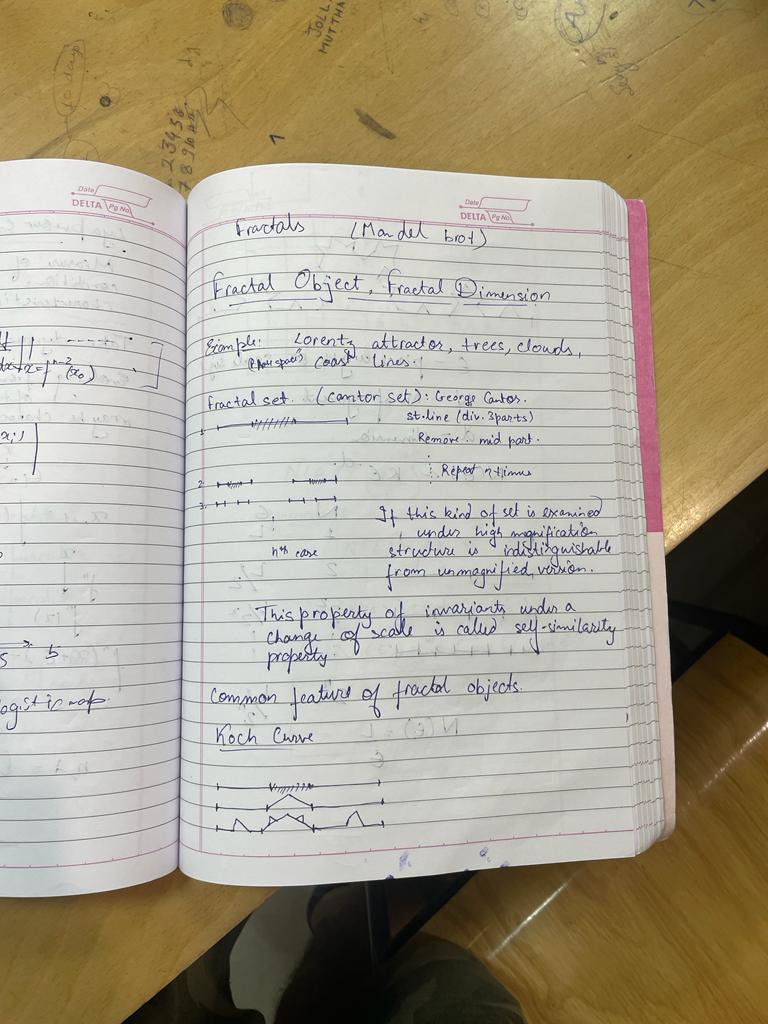 JOLL
MUTTHA
23456
789
1
Date
DELTA Pg No.
Date
DELTA Pg No.
(x₀)
5 5
logistic map
Fractals (Mandel brot)
Fractal Object, Fractal Dimension
Example: Lorentz attractor, trees, clouds,
(Phase space) coast lines.
fractal set. (cantor set): George Cantor.
1. st.line (div. 3parts)
Remove mid part.
Repeat n times
2.
3.
If this kind of set is examined
under high magnification
nth case structure is indistinguishable
from unmagnified version.
This property of invariants under a
change of scale is called self-similarity
property.
Common feature of fractal objects.
Koch Curve